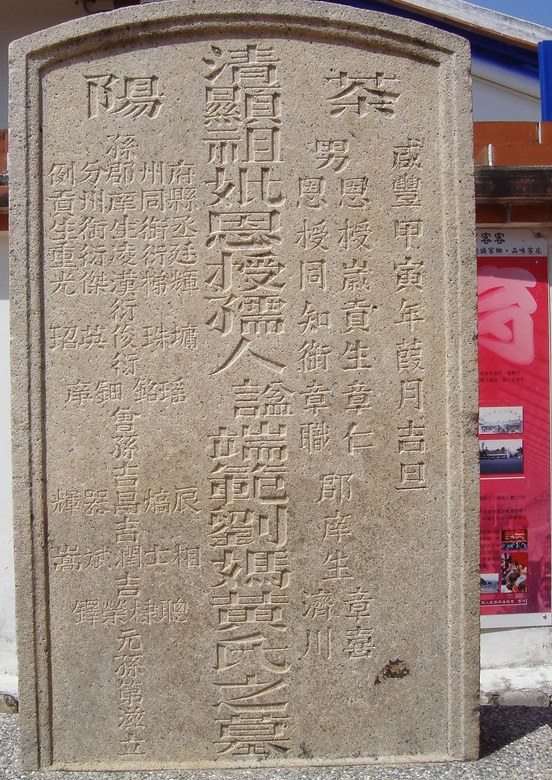 茶陽
咸豐甲寅年葭月吉旦
男恩授歲貢生章仁郡庠生章憙
恩授同知銜章職濟川
清顯祖妣恩授孺人諡端範劉媽黃氏之墓
府縣丞廷輝墉瑶辰相聰
州同銜衍梯珠銘熇士棣
孫郡庠生凌漢衍俊衍曾孫吉昌吉潤吉元孫第滋立
分州銜衍傑英鈿器斌榮
例貢生重光玿庠輝嵩鐸
品味客庄